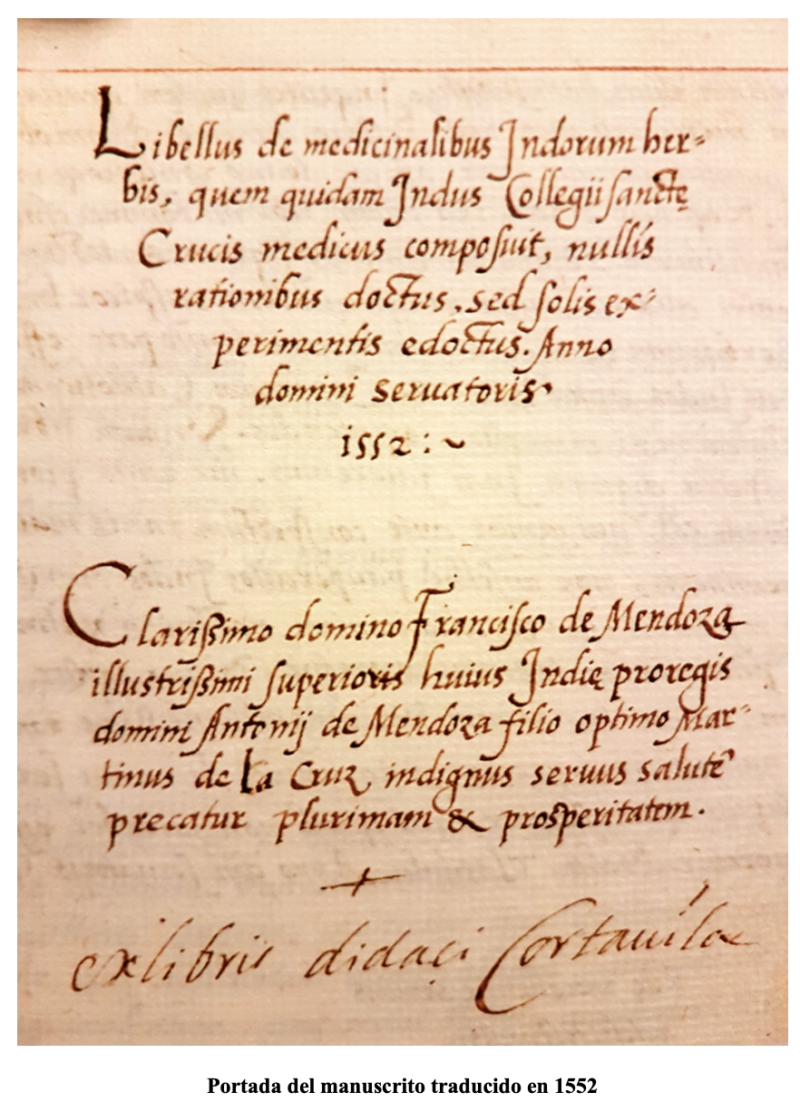 Libellus de medicinalibus Indorum her=
bis, quem quidam Indus Collegii sanctę
Crucis medicus composuit, nullis
rationibus doctus, sed solis ex=
perimentis edoctus. Anno
domini servatoris
1552:~
Clarißimo domino Francisco de Mendoza
illustrißimi superioris huius Indię proregis
domini Antonij de Mendoza filio optimo Mar=
tinus de la Cruz indignus seruus salutē
precatur plurimam & prosperitatem.
+
ex libris didaci Cortauila
Portada del manuscrito traducido en 1552